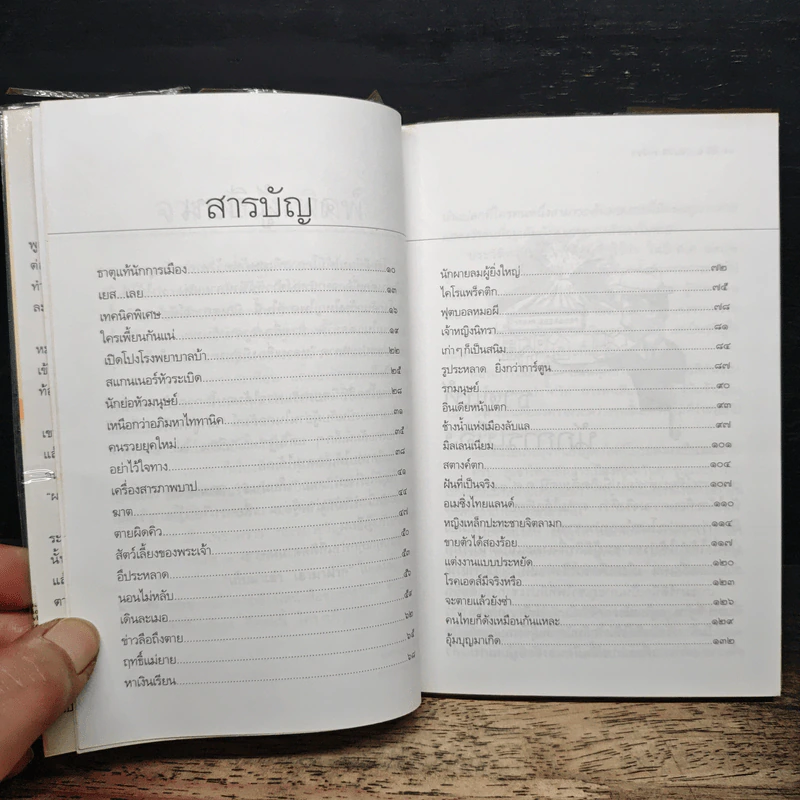 สารบัญ
ธาตุแท้นักการเมือง................๑๐
เยส...เลย................๑๓
เทคนิคพิเศษ................๑๖
ใครเพี้ยนกันแน่................๑๙
เปิดโปงโรงพยาบาลบ้า................๒๒
สแกนเนอร์หัวระเบิด................๒๕
นักย่อหัวมนุษย์................๒๘
เหนือกว่าอภิมหาไททานิค................๓๑
คนรวยยุคใหม่................๓๕
อย่าไว้ใจทาง................๓๘
เครื่องสารภาพบาป................๔๑
ฆาต................๔๔
ตายผิดคิว................๔๗
สัตว์เลี้ยงของพระเจ้า................๕๐
อึประหลาด................๕๓
นอนไม่หลับ................๕๖
เดินละเมอ................๕๙
ข่าวลือถึงตาย................๖๒
ฤทธิ์แม่ยาย................๖๕
หาเงินเรียน................๖๘
นักผายลมผู้ยิ่งใหญ่................๗๒
ไคโรแพร็คติก................๗๕
ฟุตบอลหมอผี................๗๘
เจ้าหญิงนิทรา................๘๑
เก่าๆ ก็เป็นสนิม................๘๔
รูประหลาด ยิ่งกว่าการ์ตูน................๘๗
รกมนุษย์................๙๐
อินเดียหน้าแตก................๙๓
ช้างน้ำแห่งเมืองลับแล................๙๗
มิลเลนเนียม................๑๐๑
สตางค์ตก................๑๐๔
ฝันที่เป็นจริง................๑๐๗
อเมซิ่งไทยแลนด์................๑๑๐
หญิงเหล็กปะทะชายจิตลามก................๑๑๔
ขายตัวได้สองร้อย................๑๑๗
แต่งงานแบบประหยัด................๑๒๐
โรคเอดส์มีจริงหรือ................๑๒๓
จะตายแล้วยังซ่า................๑๒๖
คนไทยก็ดังเหมือนกันแหละ................๑๒๙
อุ้มบุญมาเกิด................๑๓๒